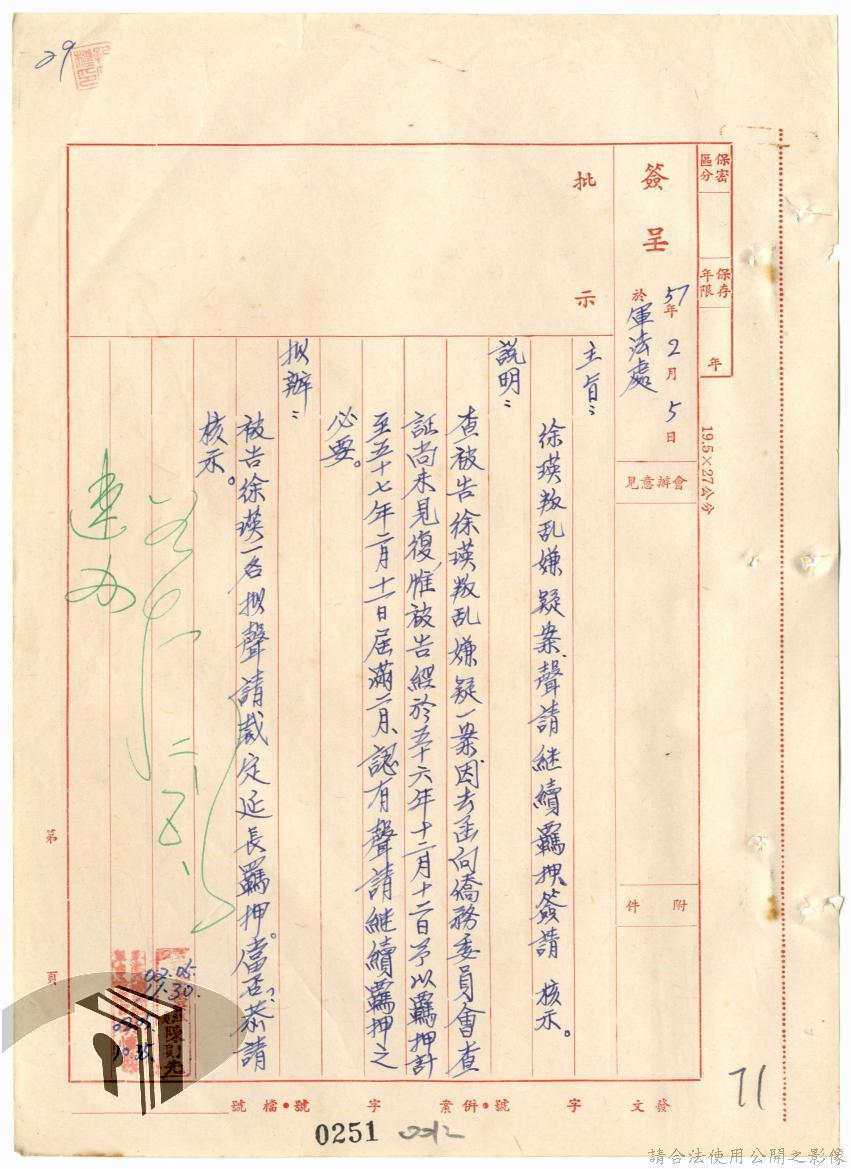 29
保密區分
保存年限
年
19.5×27公分
簽呈
57年2月5日
於軍法處
會辦意見
附件
批示
主旨：
徐瑛叛乱嫌疑案、聲請継續羈押、簽請 核示。
説明：
查被告徐瑛叛乱嫌疑一案因去函向僑務委員會查
証尚未見復，惟被告經於五十六年十二月十二日予以羈押計
至五十七年二月十一日屆滿二月、認有聲請継續羈押之
必要。
拟辦：
被告徐瑛一名拟聲請裁定延長羈押。當否？恭請
核示。
二、五、
速办
02.05.
11.30.
陳則先
10.35
第 頁
發文 字 號・併案 字 號・檔號
0251
71
請合法使用公開之影像